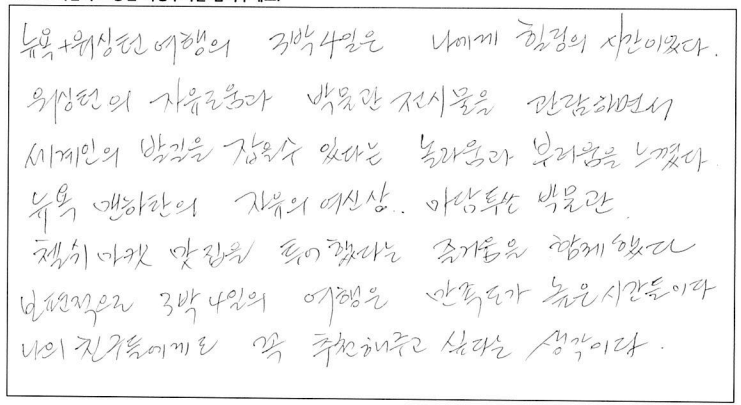 뉴욕+워싱턴 여행의 3박4일은 나에게 힐링의 시간이었다.
워싱턴의 자유로움과 박물관 전시물을 관람하면서
세계인의 발길을 잡을수 있다는 놀라움과 부러움을 느꼈다.
뉴욕 맨하탄의 자유의 여신상.. 마담투쏘 박물관
첼쉬 마켓 맛집을 투어했다는 즐거움을 함께했다
보편적으로 3박4일의 여행은 만족도가 높은 시간들이다
나의 친구들에게도 꼭 추천해주고 싶다는 생각이다.